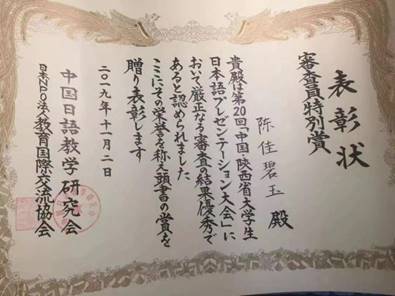 表彰状
審査員特別賞
陈佳碧玉 殿
貴殿は第20回「中国陕西省大学生
日本語プレゼンテーション大会」に
おいて厳正なる審査の結果優秀で
あると認められました
ここにその栄誉を称え頭書の賞を
贈り表彰します
二〇一九年十一月二日
中国日語教学研究会
日本NPO法人教育国際交流協会